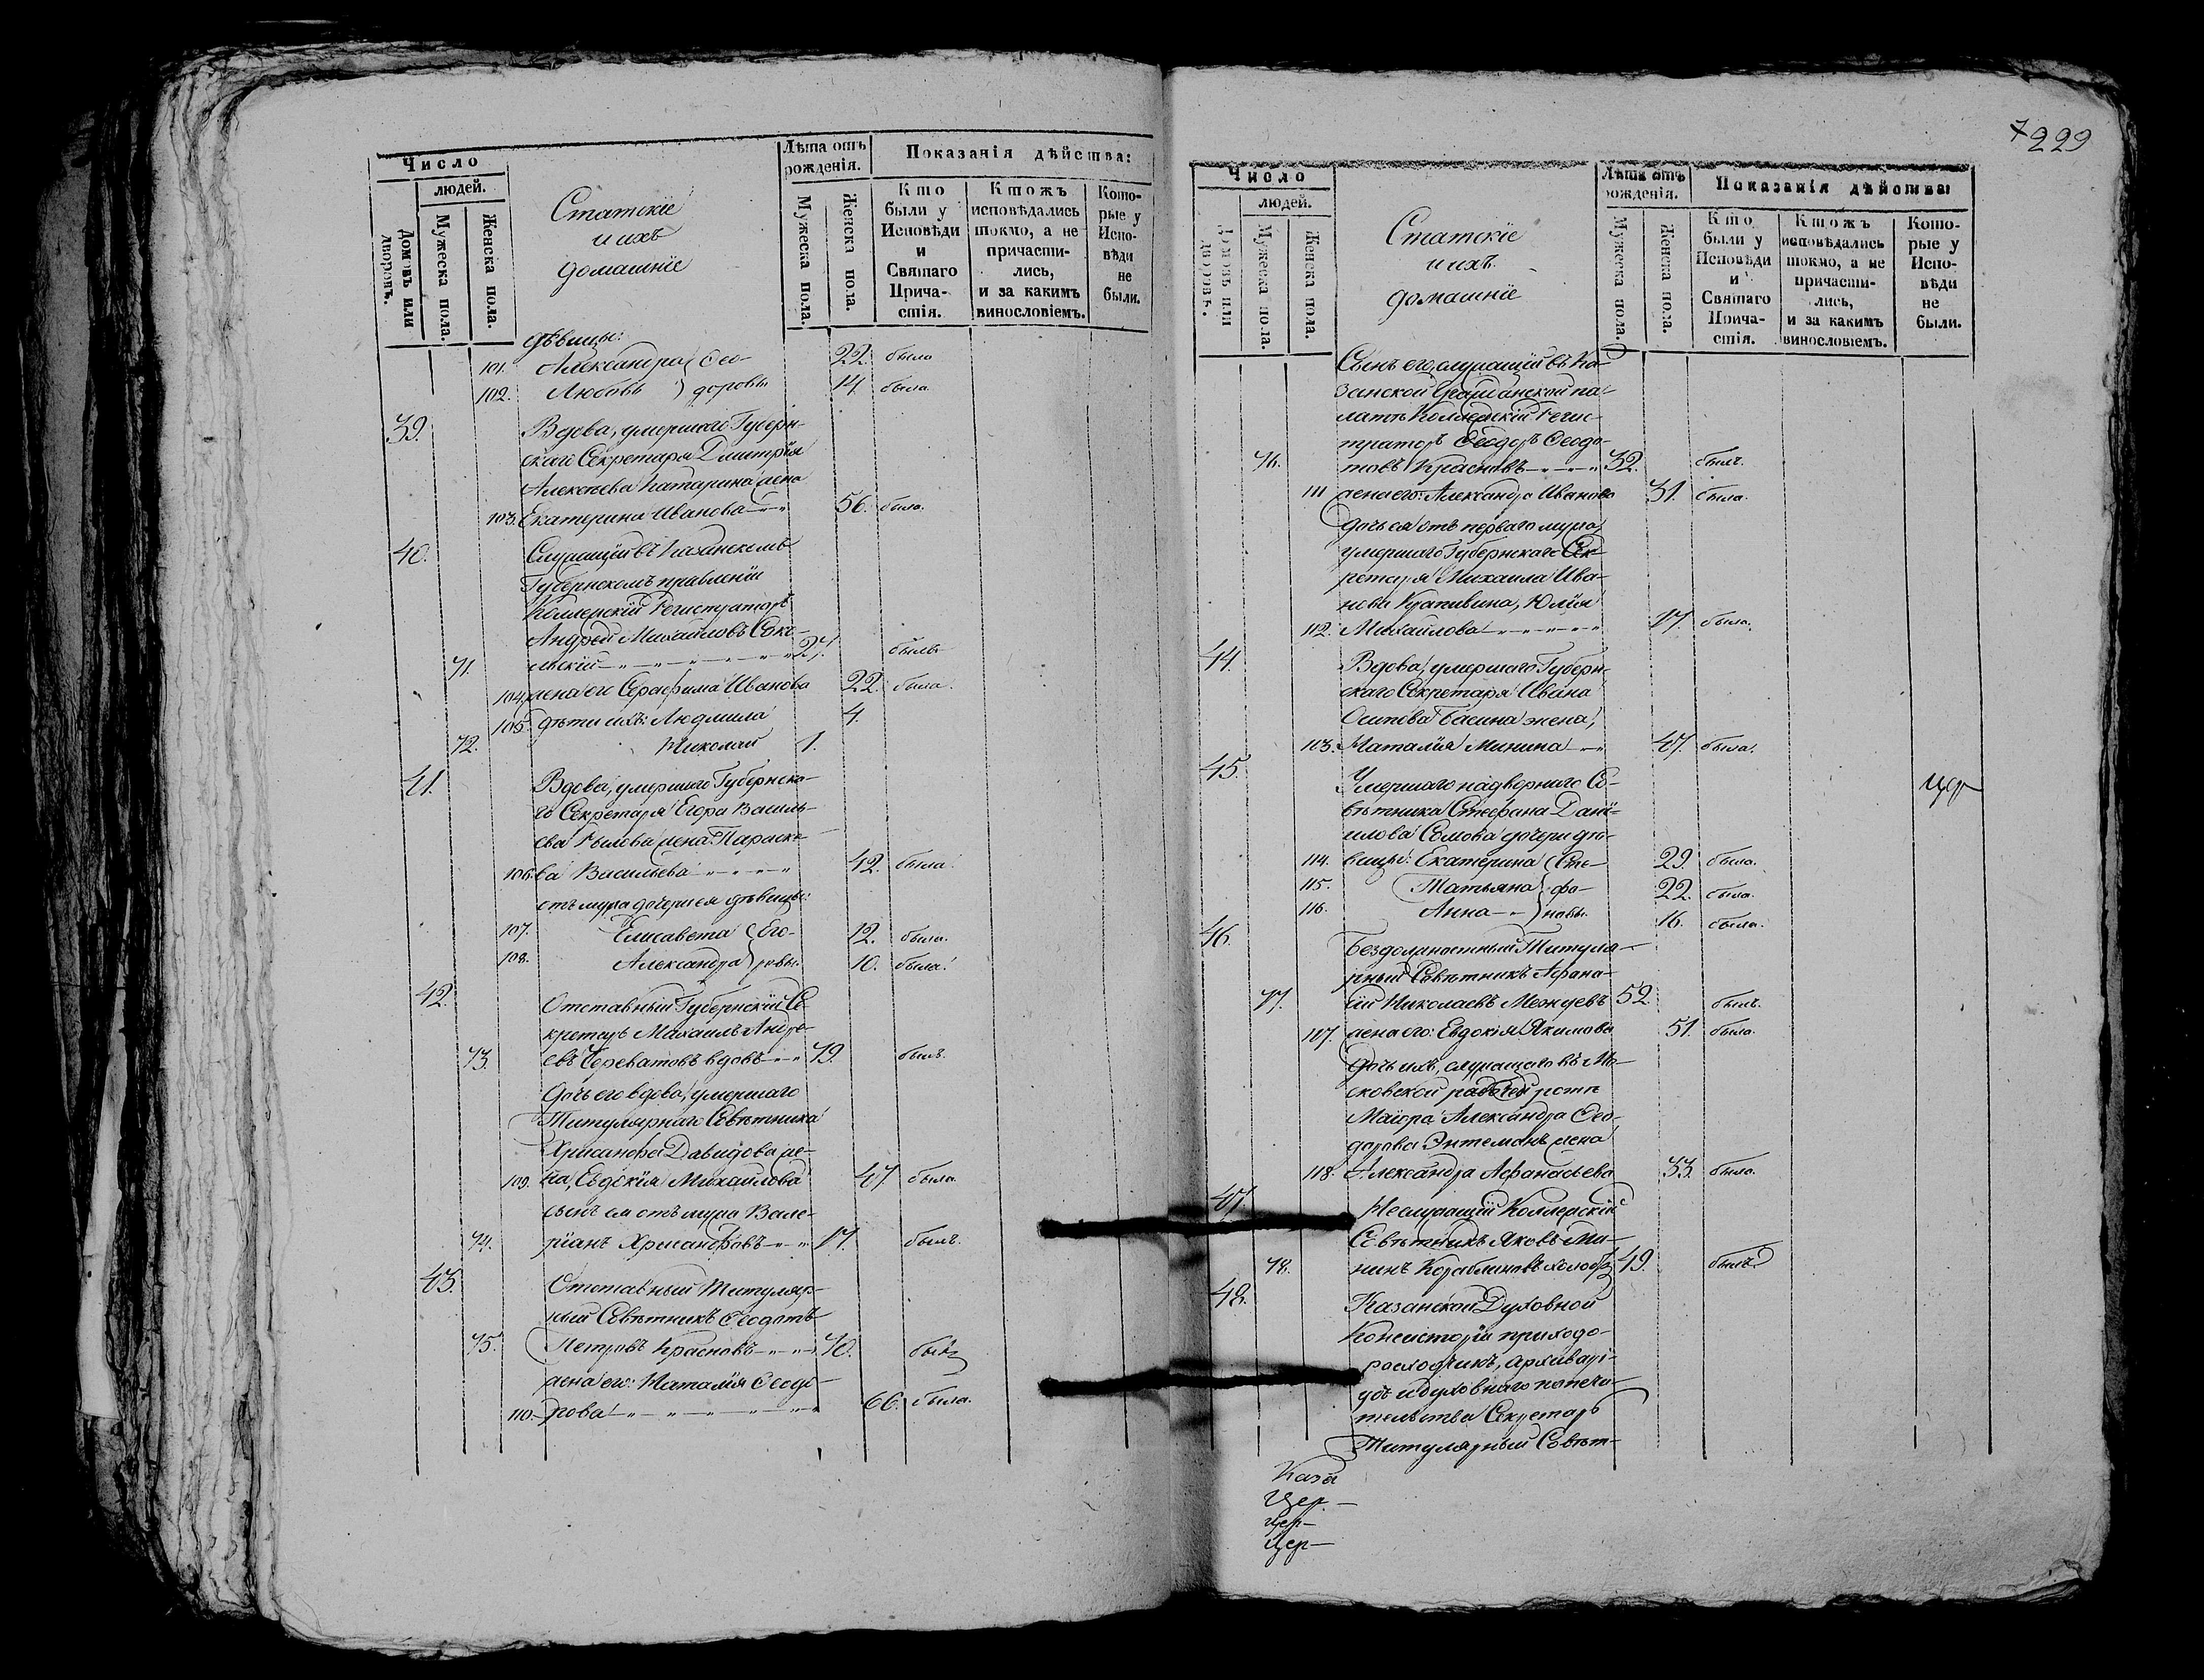 Число
людей.
Домовъ или дворовъ.
Мужеска пола.
Женска пола.
Статскіе
и ихъ
домашніе
Лѣта отъ рожденія.
Мужеска пола.
Женска пола.
Показанія дѣйства:
Кто были у Исповѣди и Святаго Прича-стія.
Ктожъ исповѣдались токмо, а не причасти-лись, и за какимъ винословіемъ.
Кото-рые у Испо-вѣди не были.
дѣвицы:
101. Александра Ѳео- 22. была
102. Любовь доровы 14. была
39. Вдова, умершаго Губерн-
скаго Секретаря Дмитрія
Алексѣева Катарина жена
103. Екатерина Иванова 56. была.
40. Служащій въ Казанскомъ
Губернскомъ правленіи
Коллежскій Регистраторъ
Андрей Михайловъ Соко-
71. лскій 27. былъ
104. жена его Серафима Иванова 22. была.
105. дѣти ихъ: Людмила 4.
72. Николай 1.
41. Вдова, умершаго Губернска-
го Секретаря Егора Василь-
ева Рылова жена Параске-
106. ва Васильева 42. была
отъ мужа дочери ея дѣвицы:
107. Елисавета Его- 12. была.
108. Александра ровы. 10. была.
42. Отставный Губернскій Се-
кретарь Михаилъ Андре-
73. евъ Череватовъ вдовъ 79. былъ.
Дочь его вдова, умершаго
Титулярнаго Совѣтника
Хрисанфа Давидова же-
109. на, Евдокія Михайлова 47. была.
сынъ ея отъ мужа Вале-
74. ріанъ Хрисанфовъ 17. былъ.
43. Отставный Титуляр-
ный Совѣтникъ Ѳеодотъ
75. Петровъ Красновъ 70. былъ
жена его: Наталія Ѳеодо-
110. рова 66. была.
7 229
Число
людей.
Домовъ или дворовъ.
Мужеска пола.
Женска пола.
Статскіе
и ихъ
домашніе
Лѣта отъ рожденія.
Мужеска пола.
Женска пола.
Показанія дѣйства:
Кто были у Исповѣди и Святаго Прича-стія.
Ктожъ исповѣдались токмо, а не причасти-лись, и за какимъ винословіемъ.
Кото-рые у Испо-вѣди не были.
Сынъ его, служащій въ Ка-
занской Гражданской па-
латѣ Коллежскій Регис-
траторъ Ѳеодоръ Ѳеодо-
76. товъ Красновъ 32. былъ.
111 жена его: Александра Иванова 31. была.
дочь ея отъ перваго мужа,
умершаго Губернскаго Сек-
ретаря Михаила Ива-
нова Крапивина, Юлія
112. Михайлова 17. была.
44. Вдова, умершаго Губерн-
скаго Секретаря Ивана
Осипова Басина жена,
103. Наталія Минина 47. была.
45. Умершаго надворнаго Со-
вѣтника Стефана Дані-
илова Сомова дочери дѣ-
114. вицы: Екатерина Сте- 29. была.
115. Татьяна фа- 22. была.
116. Анна новы. 16. была.
цер
46. Бездолжностный Титуля-
рный Совѣтникъ Афана-
77. сій Николаевъ Межуевъ 52. былъ.
107. жена его: Евдокія Якимова 51. была.
Дочь ихъ, служащаго въ Мо-
сковской рабочей ротѣ
Маіора Александра Ѳео-
дорова Энтеманъ жена
118. Александра Афанасьева 33. была.
47. Неслужащій Коллежскій
Совѣтникъ Яковъ Ми-
78. нинъ Кораблиновъ холостъ 49. былъ
48. Казанской Духовной
Консисторіи приходо-
расходчикъ, архиварі-
усъ и духовнаго попечи-
тельства Секретарь
Титулярный Совѣт-
Цер.
цер
Цер